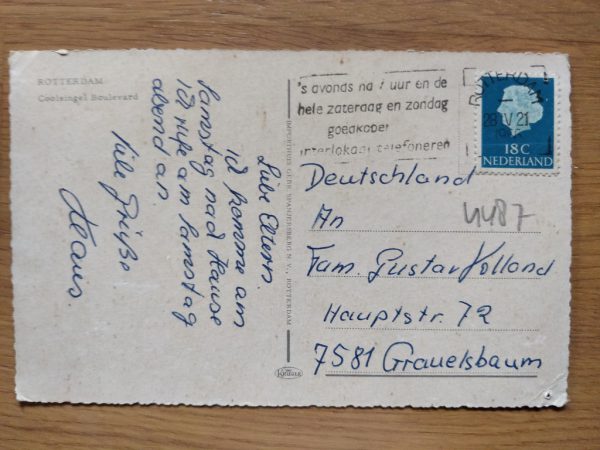 ROTTERDAM
Coolsingel Boulevard
Liebe Eltern.
ich komme am
Samstag nach Hause
ich rufe am Samstag
abend an.
Viele Grüße
Klaus.
IMPORTHUIS GEBR. SPANJERSBERG N.V., ROTTERDAM
's avonds na 7 uur en de
hele zaterdag en zondag
goedkoper
interlokaal telefoneren
ROTTERDAM
21
18 C
NEDERLAND
Deutschland
4487
An
Fam. Gustav Holland
Hauptstr. 72
7581 Grauelsbaum